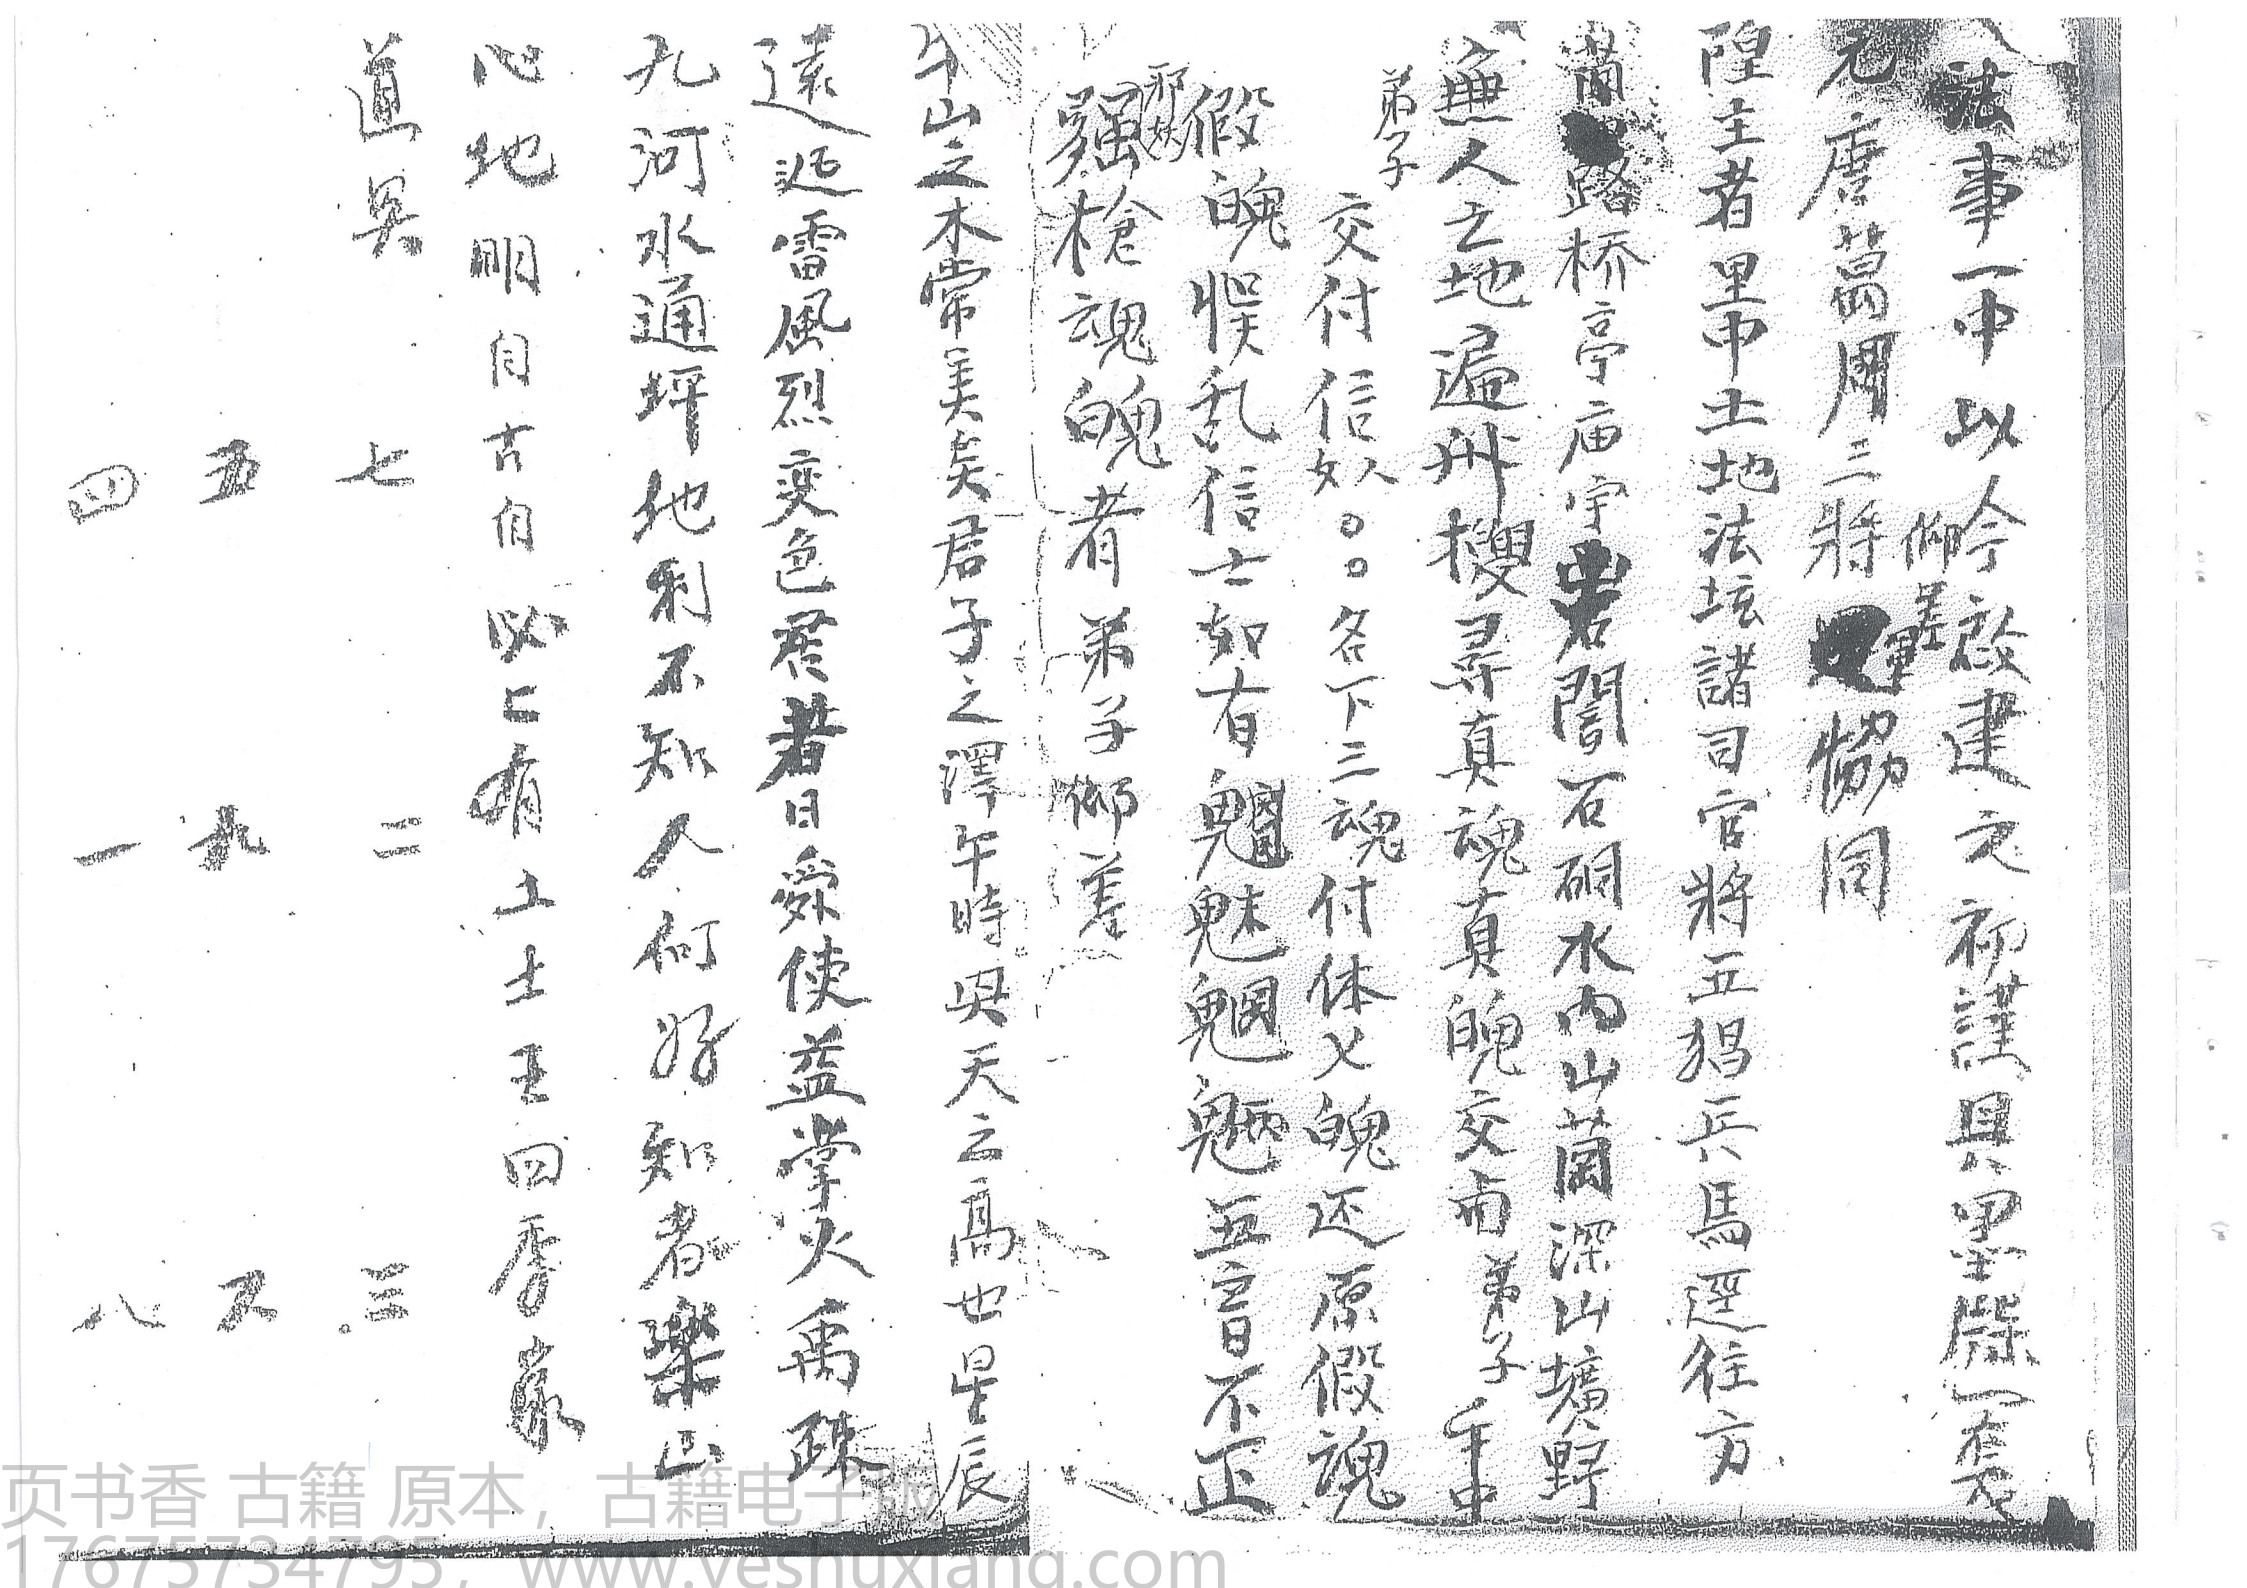 法事一中以今啟建之初謹具墨牒一道
仰差
元唐葛周三將 協同
隍主者里中土地法坛諸司官將五猖兵馬逕往方
路桥亭庙宇岩 石硐水内山 深山壙野
無人之地遍州搜尋真魂真魄交与弟子手中
弟子
交付信人。。名下三魂付体七魄还原假魂
假魄悞乱信士如有魑魅魍魎五音不正
邪妖
强槍魂魄者弟子仰差
牛山之木常美矣君子之澤午時與天之高也星辰
遠迅雷風烈变色君者日舜使益掌火禹疏
九河水通坪地地利不如人何好知者樂山
心地明自古自必亡有工土王四季
道兵
七 二 三
五 九 不
四 一 八
页书香 古籍 原本，古籍电子版
17675734795，www.yeshuxiang.com